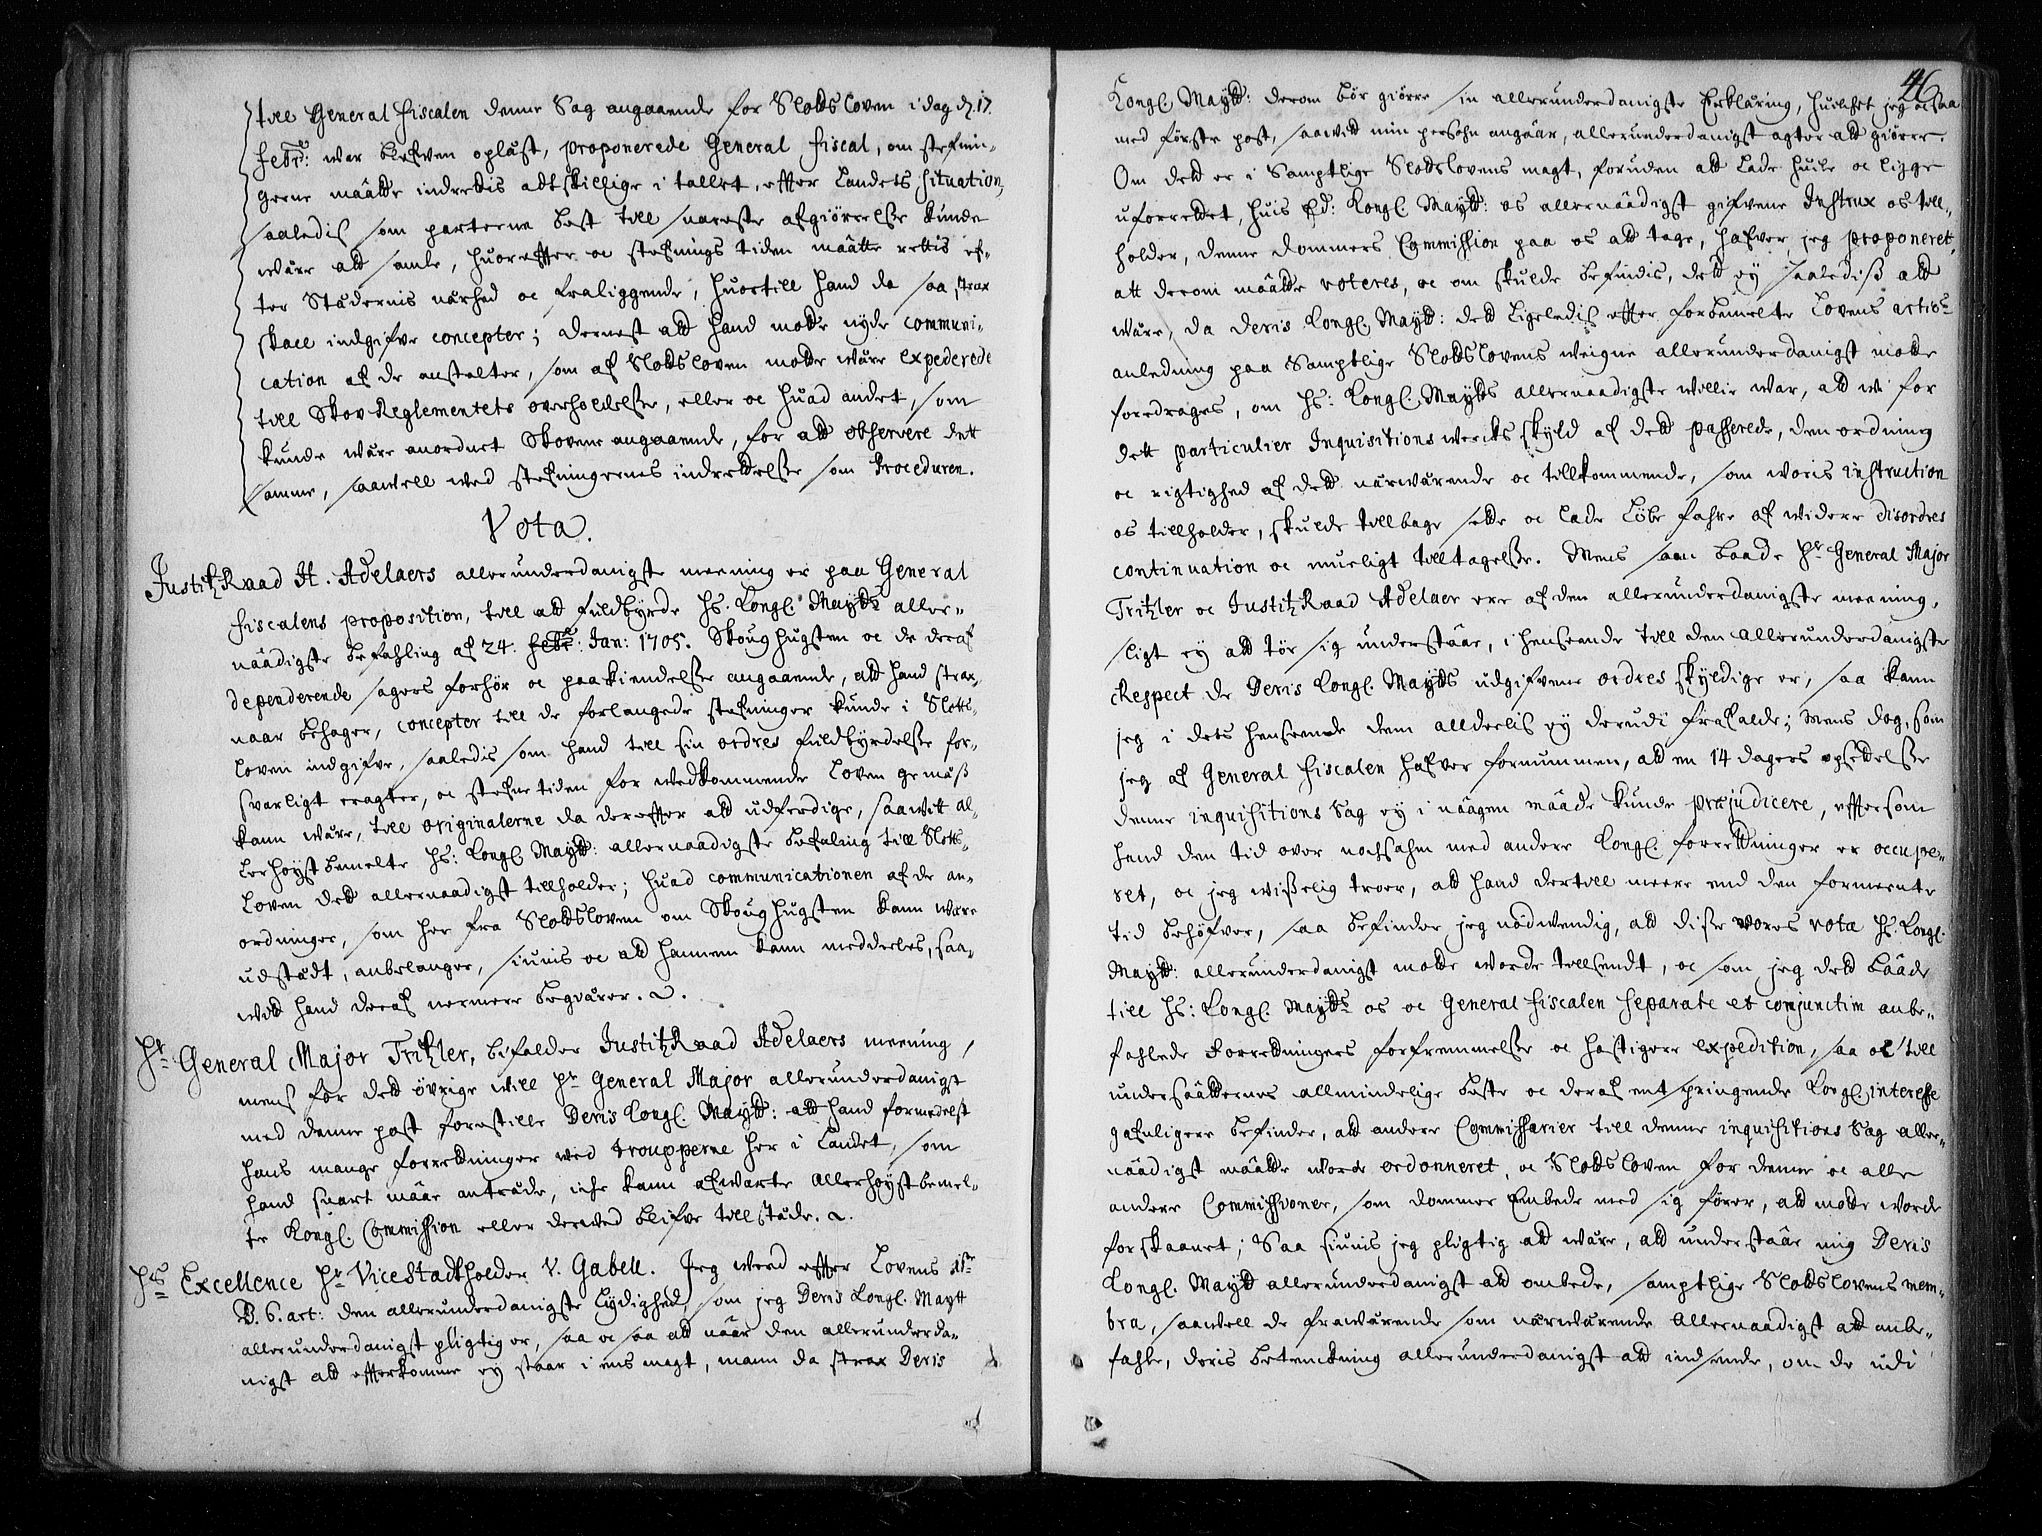 till General Fiscalen denne Sag angaaende for Slodsloven i dag d. 17
Febr: war blefven oplæst, proponerede General Fiscal, om stefnin-
gerne maatte indrettis adtskillige i tallet, efter Landets situation,
saaledis som parterne best till snareste afgiørelse kunde
være att samle, huorefter oc stefnings tiden maatte rettis ef-
ter Stædernis nærhed oc fraliggende, huortill hand da saa strax
skall indgifve concepter; dernest att hand motte nyde communi-
cation af de anstalter, som af Slodsloven motte være expederede
till Skov Reglementets overholdelse, eller oc huad andet, som
kunde være anordnet Skovene angaaende, for att observere dett
samme, saavell ved stefningernes indrettelse som Proceduren.
Vota.
JustitzRaad H. Adelaers allerunderdanigste meening er paa General
Fiscalens proposition, till att fuldbyrde Hs. Kongl. Maytts aller-
naadigste befahling af 24. Febr: Jan: 1705. Skoughugsten oc de deraf
dependerende sagers forhør oc paakiendelse angaaende, att hand strax,
naar behager, concepter till de forlangede stefninger kunde i Slotts-
loven indgifve, saaledis som hand till sin ordres fuldbyrdelse for-
svarligt eragter, oc stefne tiden for vedkommende Loven gemæss
kann være, till originalerne da derefter att udferdige, saavitt al-
lerhøystbemelte Hs: Kongl. Maytt: allernaadigste befaling till Slotts-
Loven dett allernaadigst tillholder; huad communicationen af de an-
ordninger, som her fra Slodsloven om Skoughugsten kann være
udstædt, anbelanger, siunis oc att hannem kann meddeeles, saa-
vitt hand deraf nermere begiærer.
Hr General Major Tritzler, bifalder JustitzRaad Adelaers meening,
mens for dett øvrige will Hr General Major allerunderdanigst
med denne post forestille Deris Kongl. Maytt: att hand formedelst
hans mange forretninger ved troupperne her i Landet, som
hand snart maae antræde, icke kann afwarte Allerhøystbemel-
te Kongl. Commission eller derved blifve tillstæde.
Hs Excellence Hr ViceStadtholder V. Gabell. Jeg weed efter Lovens 1ste
B. 6. art: den allerunderdanigste Lydighed, som jeg Deris Kongl. Maytt
allerunderdanigst pligtig er, saa oc saa att naar den allerunderda-
nigst att efterkomme ey staar i ens magt, mann da strax Deris
46
Kongl. Maytt: derom bør giøre sin allerunderdanigste Erklæring, huilket jeg ocsaa
med første post, saavitt min persohn angaar, allerunderdanigst agter att giøre.
Om dett er i Samptlige Slodslovens magt, foruden att lade huile oc ligge
uforrettet, huis Ed: Kongl. Maytt: os allernaadigst gifvene Instrux os till-
holder, denne dommers Commission paa os att tage, hafver jeg proponeret,
att derom maatte voteres, oc om skulde befindis, dett ey saalediss att
være, da Deris Kongl. Maytt: dett ligeledis efter forbemelte Lovens articls
anledning paa Samptlige Slodslovens veigne allerunderdanigst motte
foredrages, om Hs: Kongl. Maytts allernaadigste willie war, att wi for
dett particulier Inquisitions wercks skyld af dett passerede, den ordning
oc rigtighed af dett nærwærende oc tillkommende, som woris instruction
os tillholder, skulde tillbage sette oc lade Løbe fahre af widere disordres
continuation oc mueligt tilltagelse. Mens saa baade Hr General Major
Tritzler oc JustitzRaad Adelaer ere af den allerunderdanigste meening,
sligt ey att tør sig understaae, i henseende till den allerunderdanigste
Respect de Deris Kongl. Maytts udgifvene ordres skyldige er, saa kann
jeg i dets henseende dem alldeelis ey derudi frafalde; Mens dog, som
jeg af General Fiscalen hafver fornummen, att en 14 dagers opsettelse
denne inquisitions Sag ey i naagen maade kunde præjudicere, eftersom
hand den tid over nochsahm med andere Kongl. forretninger er occupe-
ret, oc jeg wisselig troer, att hand dertill meere end den formeente
tid behøfver, saa befinder jeg nødwendig, att disse wores vota Hs. Kongl.
Maytt: allerunderdanigst motte worde tillsendt, oc som jeg dett baade
till Hs: Kongl. Maytts os oc General Fiscalen separate et conjunctim anbe-
fahlede Forretningers forfremmelse oc hastigere expedition, saa oc till
undersaatternes allmindelige beste oc deraf entspringende Kongl. interesse
gafnligere befinder, att andere Commissarier till denne inquisitions Sag aller-
naadigst maatte worde ordonneret, oc Slodsloven for denne oc alle
andere Commissioner, som dommer Embede med sig fører, att motte worde
forskaanet; Saa siunis jeg pligtig att være, att understaae mig Deris
Kongl. Maytt allerunderdanigst att ombede, samptlige Slodslovens mem-
bra, saavell de frawærende som nærwærende Allernaadigst att anbe-
fahle, deris betenckning allerunderdanigst att indsende, om de udi